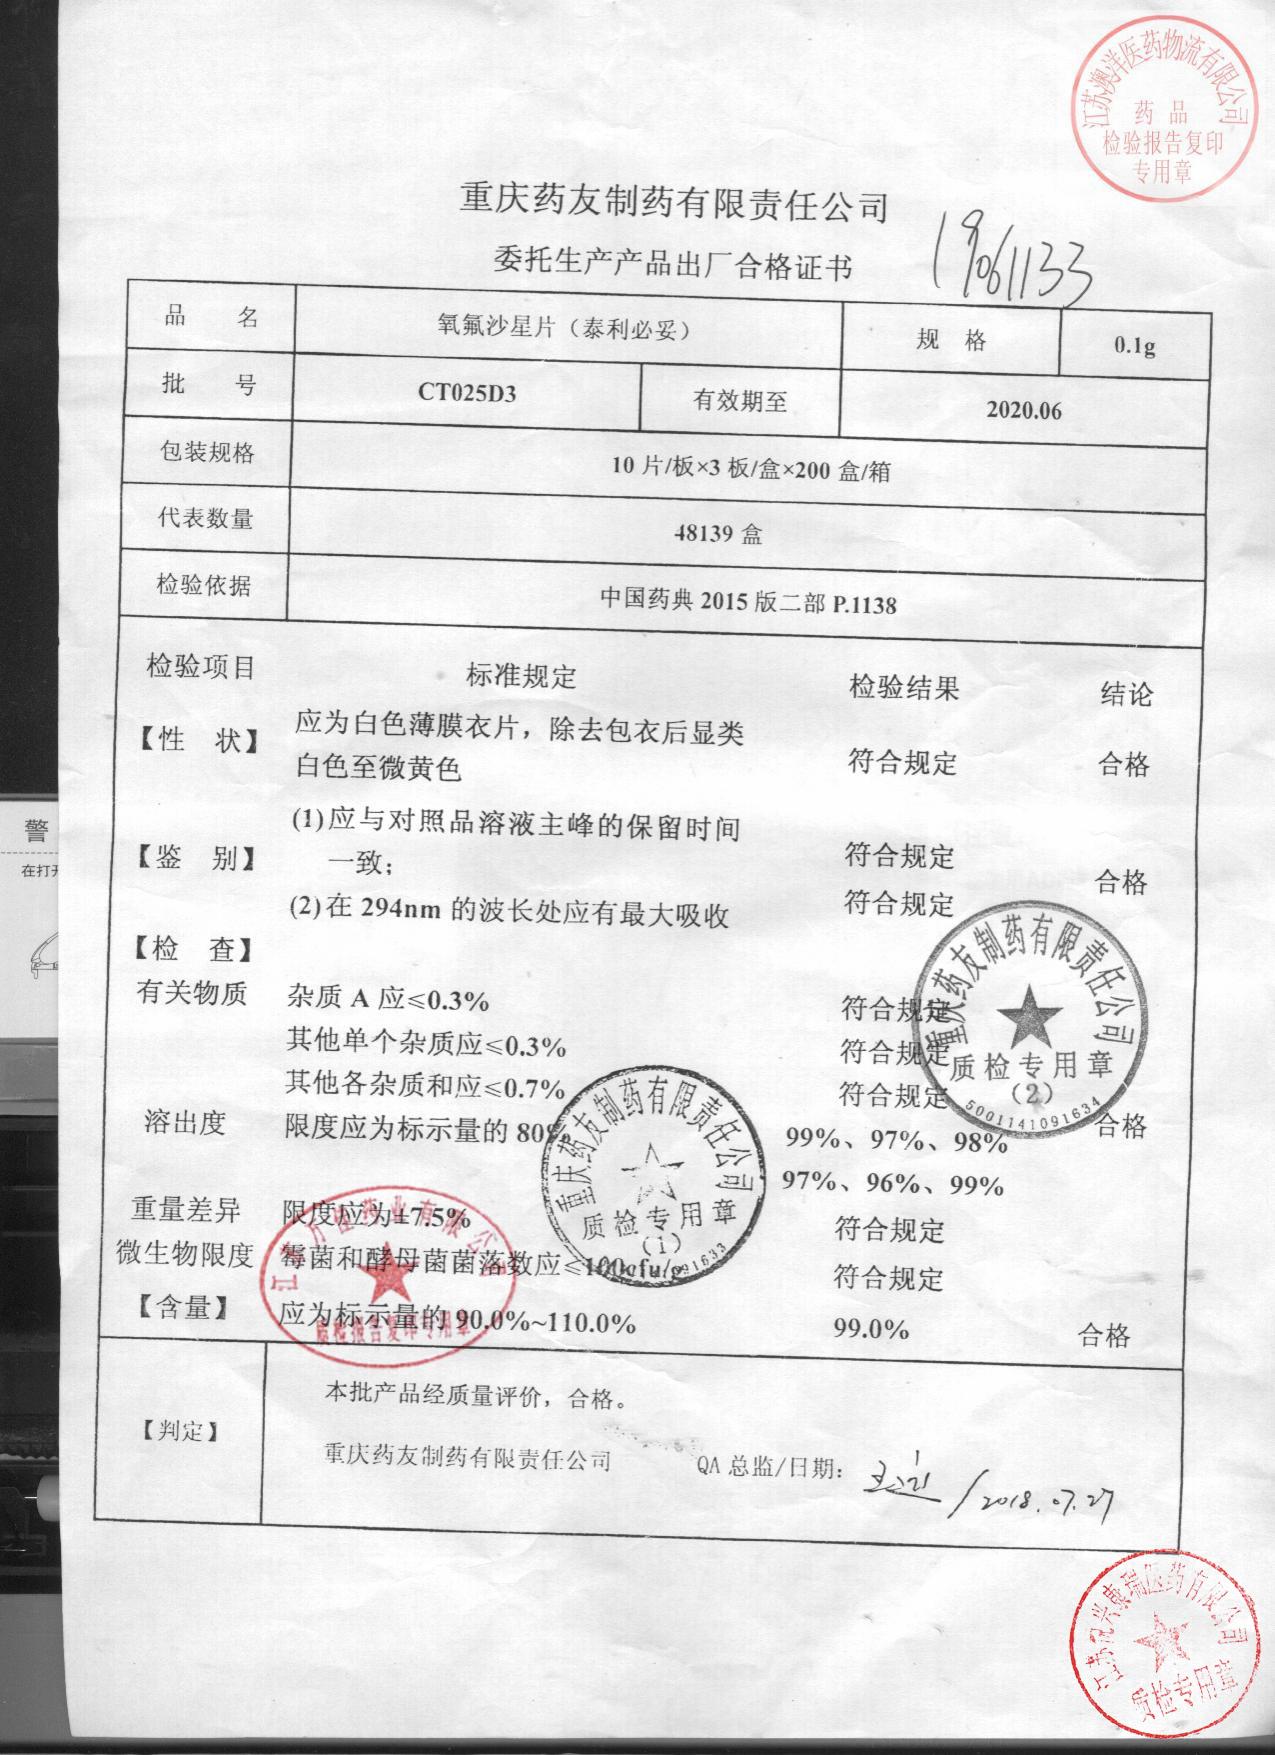 江苏澳洋医药物流有限公司
药品
检验报告复印
专用章
重庆药友制药有限责任公司
委托生产产品出厂合格证书
19061133
品 名 氧氟沙星片（泰利必妥） 规 格 0.1g
批 号 CT025D3 有效期至 2020.06
包装规格 10 片/板×3 板/盒×200 盒/箱
代表数量 48139 盒
检验依据 中国药典 2015 版二部 P.1138
检验项目 标准规定 检验结果 结论
【性 状】 应为白色薄膜衣片，除去包衣后显类 符合规定 合格
白色至微黄色
【鉴 别】 (1)应与对照品溶液主峰的保留时间 符合规定 合格
一致；
(2)在 294nm 的波长处应有最大吸收 符合规定
【检 查】
有关物质 杂质 A 应≤0.3% 符合规定
其他单个杂质应≤0.3% 符合规定
其他各杂质和应≤0.7% 符合规定
溶出度 限度应为标示量的 80% 99%、97%、98% 合格
97%、96%、99%
重量差异 限度应为±7.5% 符合规定
微生物限度 霉菌和酵母菌菌落数应≤100cfu/g 符合规定
【含量】 应为标示量的 90.0%~110.0% 99.0% 合格
重庆药友制药有限责任公司
质检专用章
（2）
5001141091634
重庆药友制药有限责任公司
质检专用章
（1）
91633
药业有限公司
质检报告复印专用章
【判定】 本批产品经质量评价，合格。
重庆药友制药有限责任公司 QA 总监/日期： / 2018.07.27
质检专用章
警
在打开